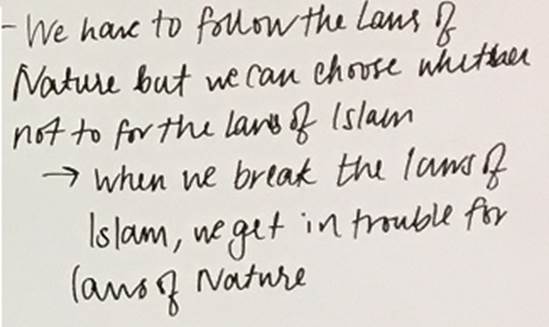 - We have to follow the Laws of
Nature but we can choose whether
not to for the laws of Islam
→ when we break the laws of
Islam, we get in trouble for
laws of Nature